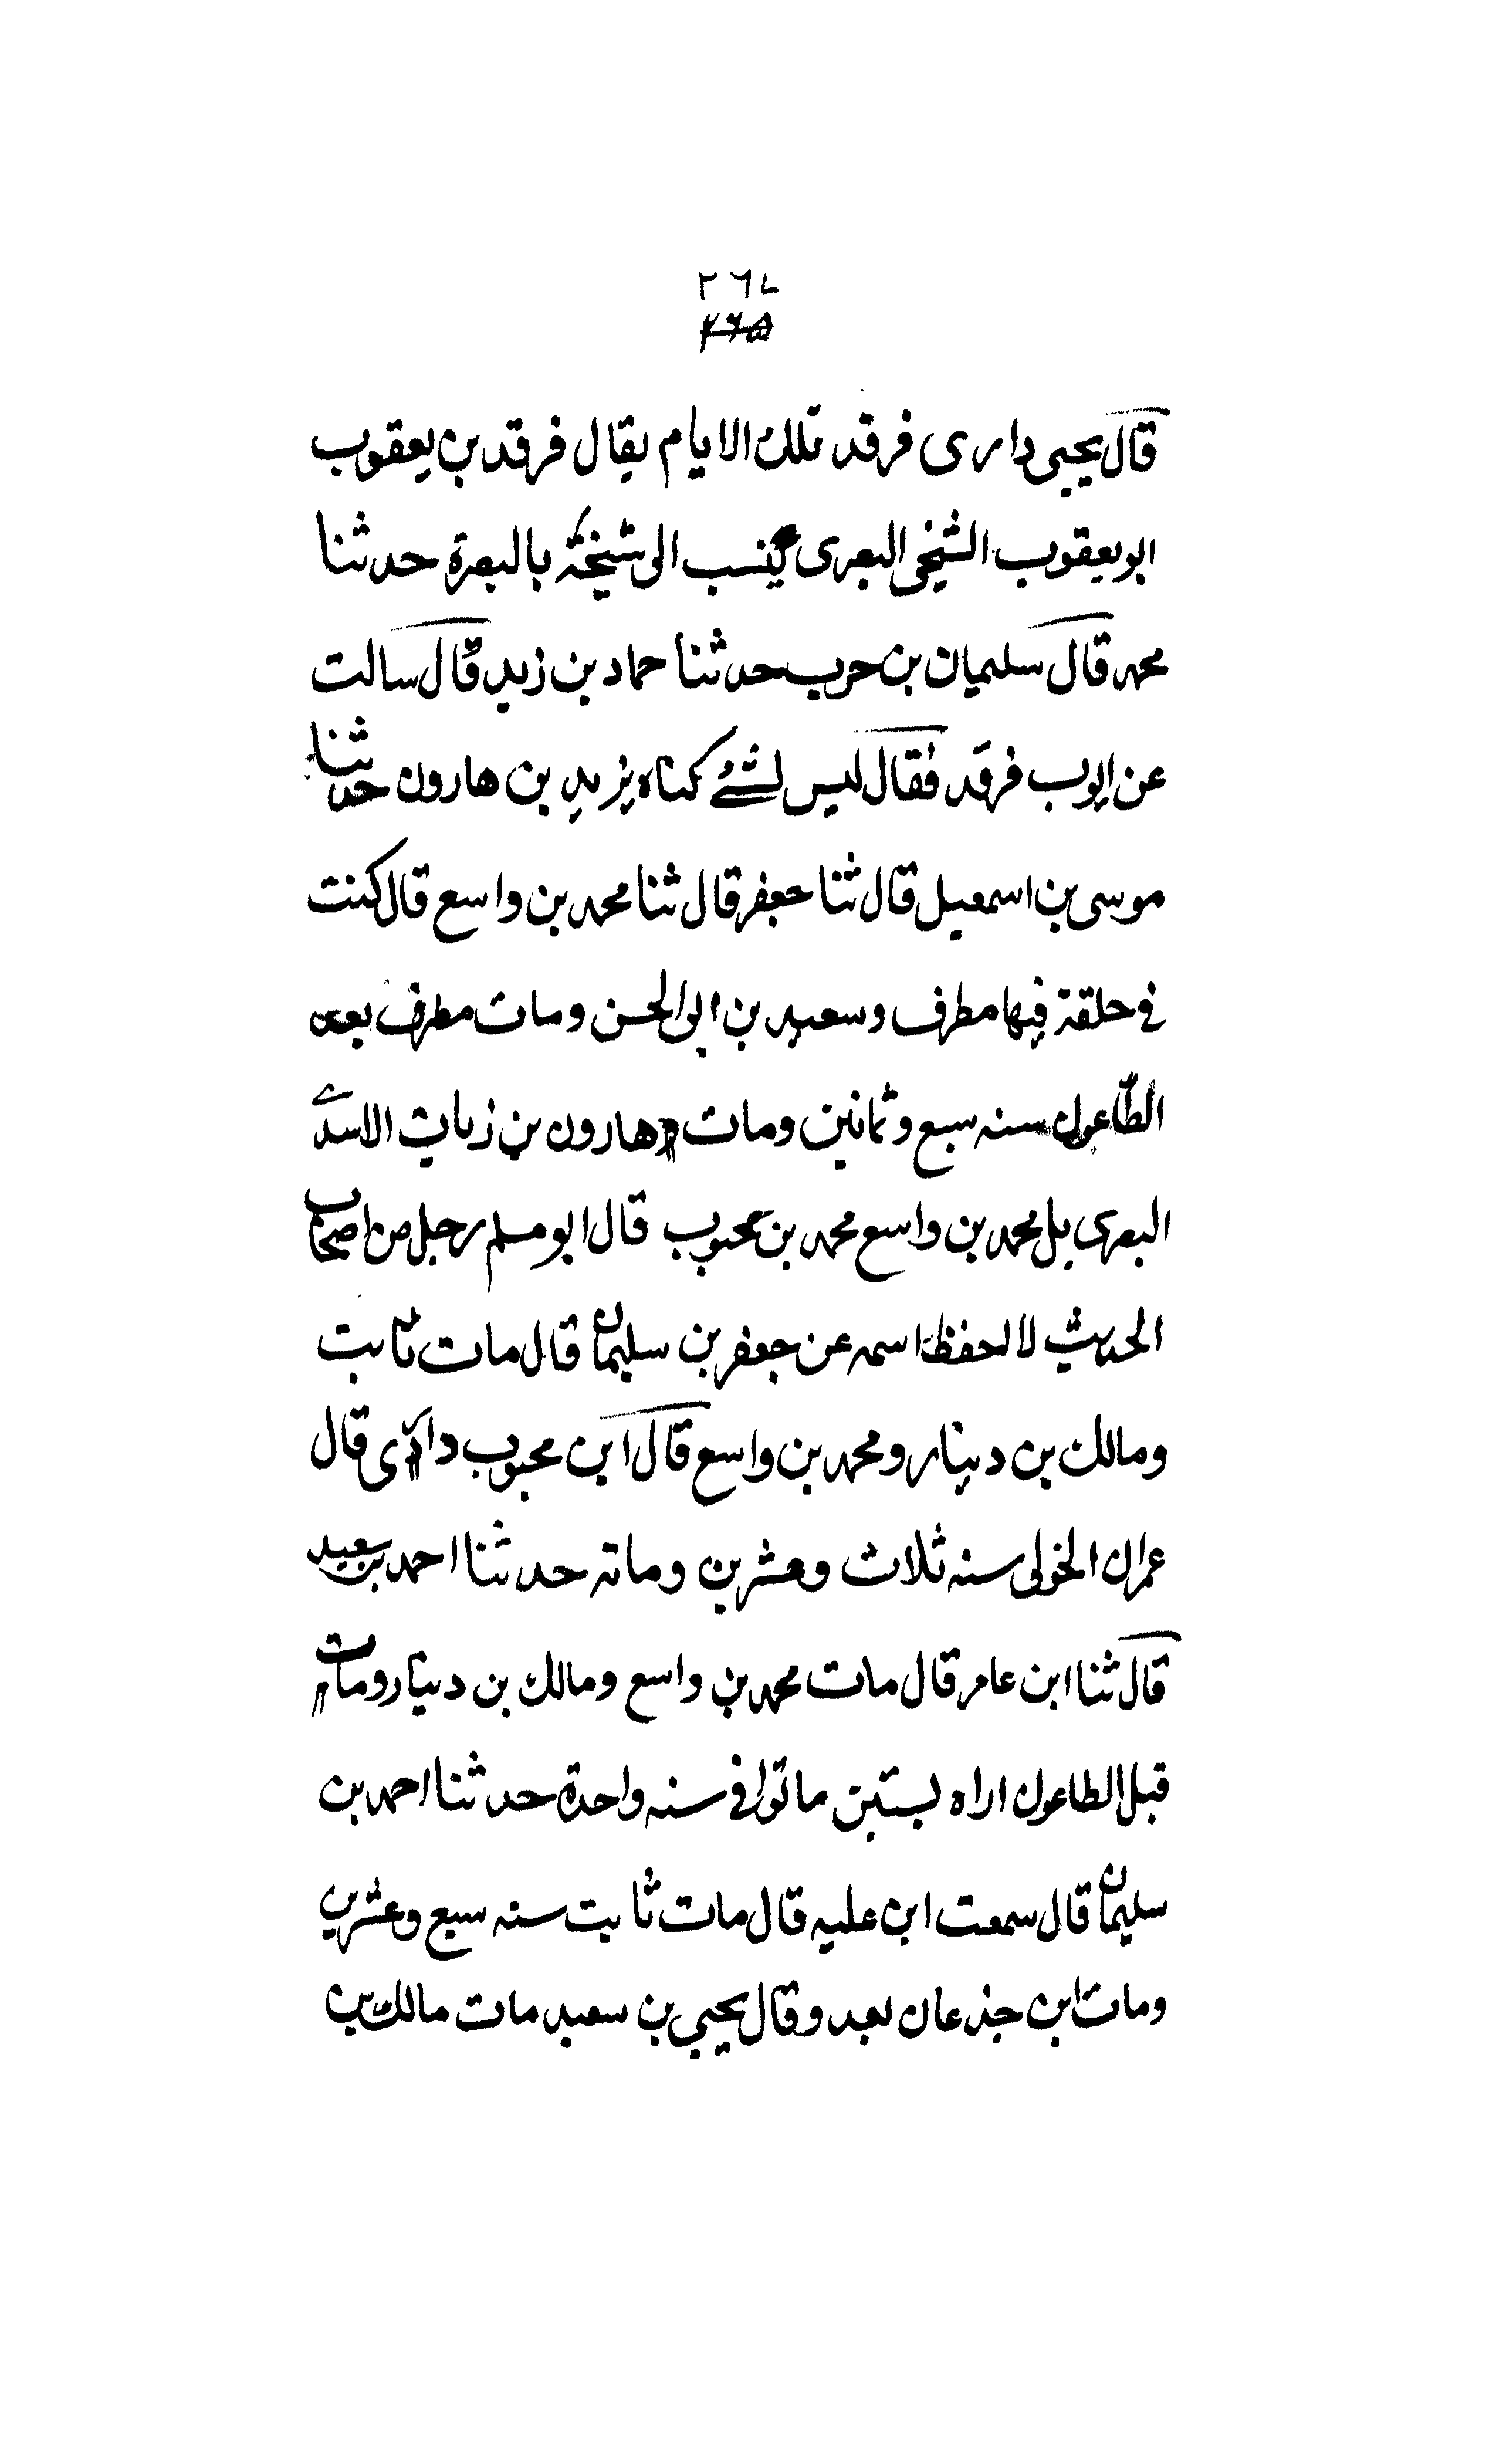 ٢٦٧
٢٦٥
قال يحيى دارى فرقد تلك الايام يقال فرقد بن يعقوب
ابو يعقوب الشيخى البصرى ينسب الى شيخة بالبصرة حدثنا
محمد قال سليمان بن حرب حدثنا حماد بن زيد قال سالت
عن ايوب فرقد فقال ليس بشئ كناه يزيد بن هارون حدثنا
موسى بن اسمعيل قال ثنا جعفر قال ثنا محمد بن واسع قال كنت
فى حلقة فيها مطرف وسعيد بن ابى الحسن ومات مطرف بعد
الطاعون سنه سبع وثمانين ومات هارون بن رياب الاسدى
البصرى بل محمد بن واسع محمد بن محبوب قال ابو مسلم رجل من اصحاب
الحديث لا احفظ اسمه عن جعفر بن سليمان قال مات ثابت
ومالك بن دينار ومحمد بن واسع قال ابن محبوب دارى قال
عمران الخولى سنه ثلاث وعشرين ومائه حدثنا احمد بن سعيد
قال ثنا ابن عامر قال مات محمد بن واسع ومالك بن دينار ومات
قبل الطاعون اراه بسنتين ماتوا فى سنه واحدة حدثنا احمد بن
سليمان قال سمعت ابن عليه قال مات ثابت سنه سبع وعشرين
ومات ابن جذعان بعد وقال يحيى بن سعيد مات مالك بن